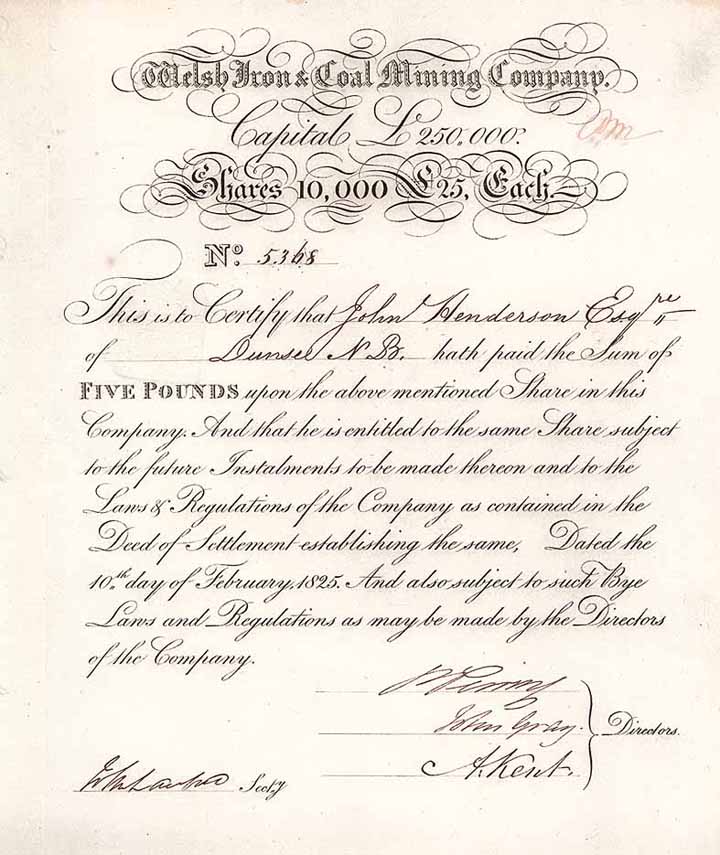 Welsh Iron & Coal Mining Company.
Capital £250,000.
Shares 10,000 £25, Each.
No. 5368
This is to Certify that John Henderson Esqre
of N.B. hath paid the Sum of
FIVE POUNDS upon the above mentioned Share in this
Company. And that he is entitled to the same Share subject
to the future Instalments to be made thereon and to the
Laws & Regulations of the Company as contained in the
Deed of Settlement establishing the same, Dated the
10th day of February, 1825. And also subject to such Bye
Laws and Regulations as may be made by the Directors
of the Company.
John Gray.
Directors.
A. Kent.
Secty